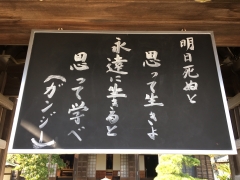 明日死ぬと
思って生きよ
永遠に生きると
思って学べ
(ガンジー)